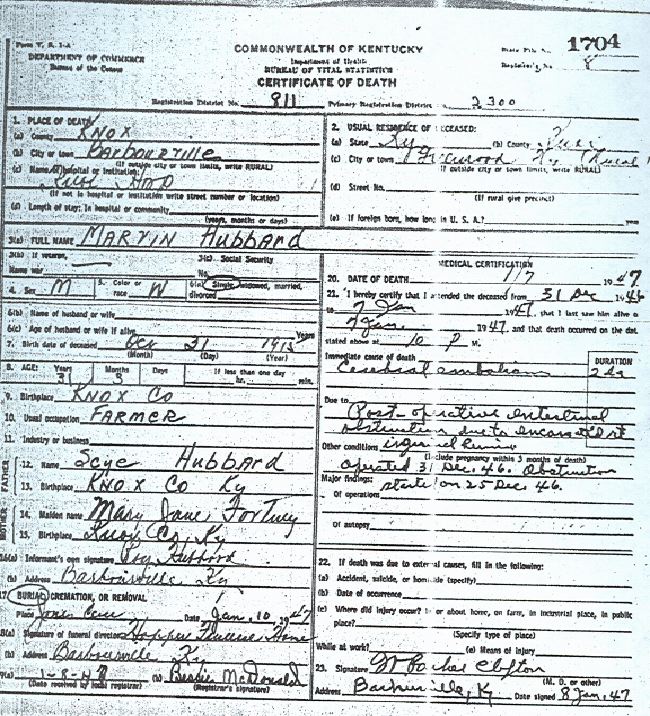 Form V. S. 1-A
DEPARTMENT OF COMMERCE
Bureau of the Census
COMMONWEALTH OF KENTUCKY
Department of Health
BUREAU OF VITAL STATISTICS
CERTIFICATE OF DEATH
State File No. 1704
Registrar's No. 8
Registration District No. 811 Primary Registration District 2300
1. PLACE OF DEATH
(a) County KNOX
(b) City or town BARBOURVILLE
(If outside city or town limits, write RURAL)
(c) Name of hospital or institution:
(If not in hospital or institution write street number or location)
(d) Length of stay: In hospital or community
(years, months or days)
2. USUAL RESIDENCE OF DECEASED:
(a) State Ky (b) County Knox
(c) City or town Ky (Rural)
(If outside city or town limits, write RURAL)
(d) Street No.
(If rural give precinct)
(e) If foreign born, how long in U. S. A.? years
3(a) FULL NAME MARVIN Hubbard
3(b) If veteran,
Name war
3(c) Social Security
No.
4. Sex M 5. Color or race W 6(a) Single, widowed, married, divorced
6(b) Name of husband or wife
6(c) Age of husband or wife if alive Years
7. Birth date of deceased Oct 21 1915
(Month) (Day) (Year)
8. AGE: Years 31 Months 3 Days If less than one day hr. min.
9. Birthplace KNOX CO
10. Usual occupation FARMER
11. Industry or business
FATHER
12. Name Scye Hubbard
13. Birthplace KNOX Co Ky
MOTHER
14. Maiden name Mary Jane Fortney
15. Birthplace Knox Co, Ky
16(a) Informant's own signature Roy Hubbard
(b) Address Barbourville Ky
17 BURIAL, CREMATION, OR REMOVAL
Place Date Jan. 10, 1947
18(a) Signature of funeral director Hopper Funeral Home
(b) Address Barbourville Ky.
19(a) 1-8-47 (b) Bessie McDonald
(Date received by local registrar) (Registrar's signature)
MEDICAL CERTIFICATION
20. DATE OF DEATH 1/7 1947
21. I hereby certify that I attended the deceased from 31 Dec 1946
to 7 Jan 1947, that I last saw him alive on
7 Jan 1947, and that death occurred on the date
stated above at 10 P M.
Immediate cause of death DURATION
Cerebral embolism 2 da
Due to
Post-operative intestinal
obstruction due to incarcerated rt
Other conditions inguinal hernia
(Include pregnancy within 3 months of death)
operated 31 Dec. 46. Obstruction
Major findings: started on 25 Dec 46.
Of operations
Of autopsy
22. If death was due to external causes, fill in the following:
(a) Accident, suicide, or homicide (specify)
(b) Date of occurrence
(c) Where did injury occur? In or about home, on farm, in industrial place, in public
place?
(Specify type of place)
While at work? (e) Means of injury
23. Signature Clifton
(M. D. or other)
Address Barbourville, Ky Date signed 8 Jan, 47